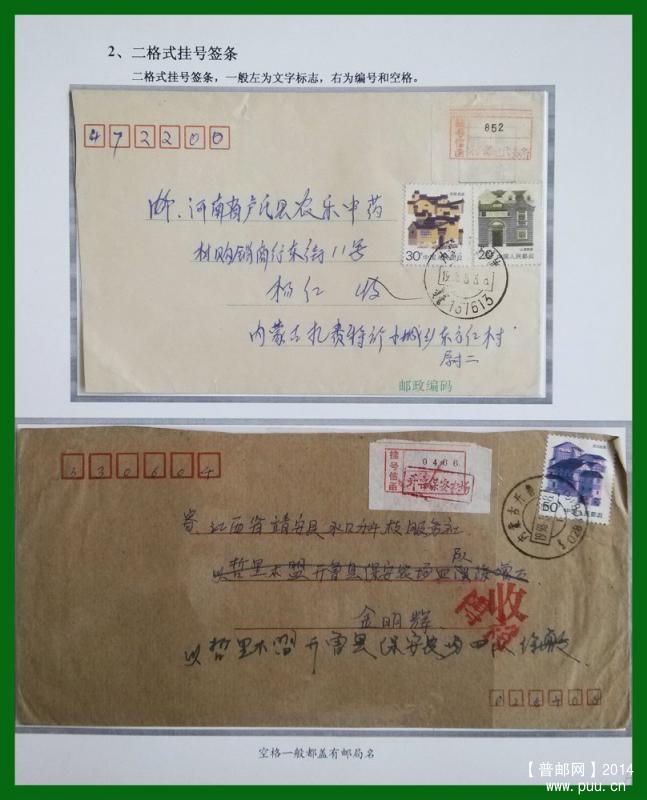 2、二格式挂号签条
二格式挂号签条，一般左为文字标志，右为编号和空格。
472200
挂号信函
852
邮.河南省卢氏县农乐中药
材购销商行东街11号
杨仁 收
30分 中国人民邮政
20分 中国人民邮政
157613
内蒙古扎赉特
邮政编码
330604
挂号信函
0466
开鲁保安农场
50分 中国人民邮政
内蒙古开鲁
寄.江西省靖安县水口科技服务社
以哲里木盟开鲁县保安农场四
队
金明辉
收
以哲里木盟开鲁县保安农场四队
空格一般都盖有邮局名
【普邮网】2014
www.puu.cn